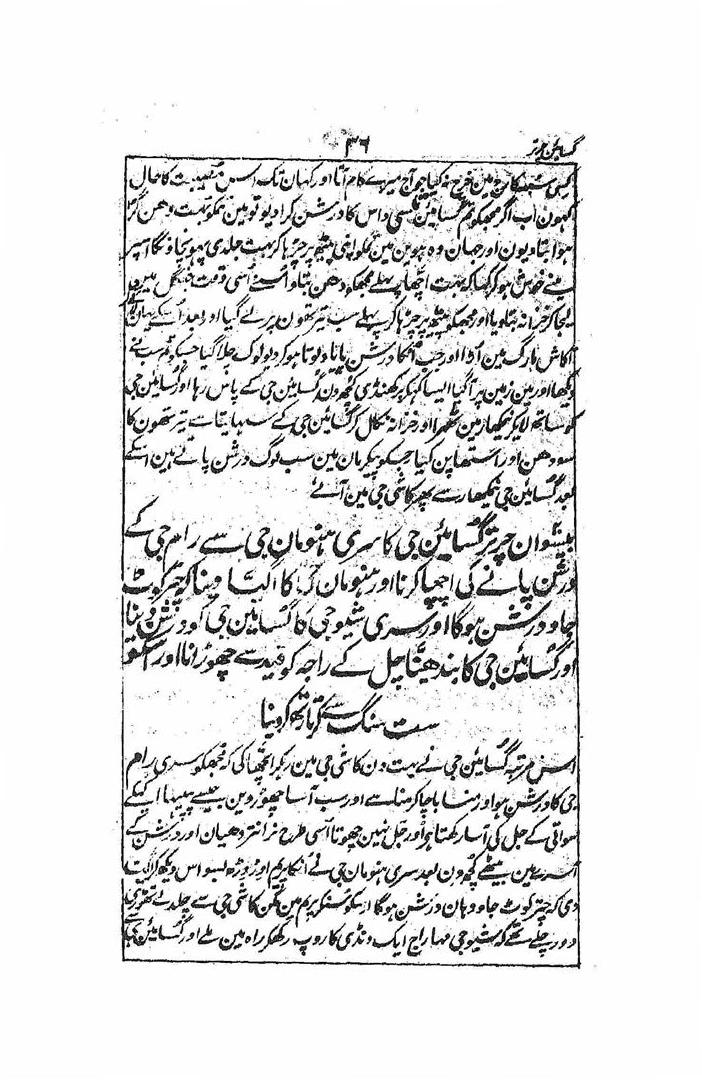 گسائین چرتر
۳۶
کسی شبھ کارج مین خرچ نہ کیا جو آج میرے کام آتا اور کہان تک اس مصیبت کا حال
کہون اب اگر مجھکو تم گسائین تلسی داس کا درشن کرا دیو تو مین تمکو بہت دھن گڑا
ہوا بتا دیون اور جہان وہ ہووین مین تمکو اپنی پیٹھ پر چڑہا کر بہت جلدی پہونچا دونگا اسپر
مینے خوش ہو کر کہا کہ بہت اچھا پہلے مجھکو دھن بتاو اُسنے اُسی وقت جنگل مین
لیجا کر خزانہ بتا دیا اور مجھکو پیٹھ پر چڑہا کر پہلے سب تیرتھون پر لے گیا اور بعد اُسکے یہان
آکاش مارگ مین آیا اور جب آپکا درشن پایا دیوتا ہو کر دیولوک چلا گیا جسکو تم سب نے
دیکھا اور مین زمین پر آ گیا ایسا کہکر کھنڈی کچھ دن گسائین جی کے پاس رہا اور گسائین جی
کو ساتھ لا کر نیکھار مین ٹھہرا اور خزانہ نکال کر گسائین جی کے سہایتا سے تیرتھون کا
سودھن اور استھاپن کیا جسکو پکرمان مین سب لوگ درشن پاتے ہین اسکے
بعد گسائین جی نیکھار سے پھر کاشی جی مین آئے
بیسوان چرتر گسائین جی کا سری ہنومان جی سے رام جی کے
درشن پانے کی اچھا کرنا اور ہنومان جی کا اگیا دینا کہ چترکوٹ
جاو درشن ہوگا اور سری شیوجی کا گسائین جی کو درشن دینا
اور گسائین جی کا بندھیاچل کے راجہ کو قید سے چھوڑانا اور اسکو
ست سنگ سے کرتارتھ کر دینا
اس مرتبہ گسائین جی نے بہت دن کاشی جی مین رہکر اچھا کی کہ مجھکو سری رام
جی کا درشن ہو اور منسا باچا کرمنا سے اور سب آسا چھوڑ دین جیسے پپیہا ایک
سواتی کے جل کی آسا رکھتا ہے اور جل نہین چھوتا اُسی طرح نرانتر دھیان اور درشن کے
آسرے مین بیٹھے کچھ دن بعد سری ہنومان جی نے انکا پریم اور دڑھ بسواس دیکھکر اگیا
دی کہ چترکوٹ جاو وہان درشن ہوگا اسکو سنکر پریم مین مگن کاشی جی سے چلدئے تھوڑی
دور چلے تھے کہ شیوجی مہاراج ایک دنڈی کا روپ رکھکر راہ مین ملے اور گسائین جی